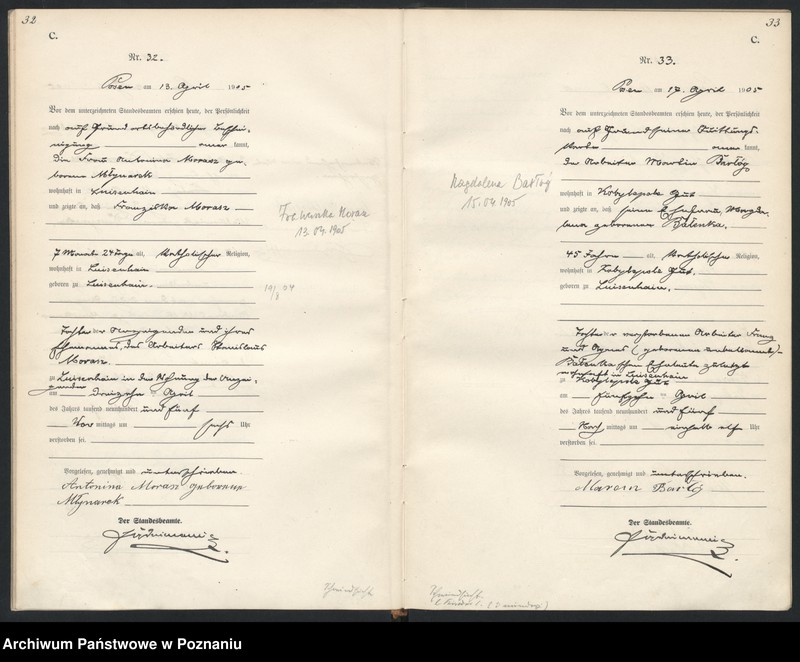 32
C.
Nr. 32.
Posen am 13. April 1905
Vor dem unterzeichneten Standesbeamten erschien heute, der Persönlichkeit
nach auf Grund ortsbehördlicher Beschei-
nigung kannt,
die Frau Antonina Morasz ge-
borene Młynarek
wohnhaft in Luisenhain
und zeigte an, daß Franziska Morasz
7 Monate 24 Tage alt, katholischer Religion,
wohnhaft in Luisenhain
geboren zu Luisenhain.
Tochter der Anzeigenden und ihres
Ehemannes, des Arbeiters Stanislaus
Morasz.
zu Luisenhain in der Wohnung der Anzei-
genden
am dreizehn April
des Jahres tausend neunhundert und fünf
Vor mittags um sechs Uhr
verstorben sei.
Vorgelesen, genehmigt und unterschrieben.
Antonina Morasz geborene
Młynarek
Der Standesbeamte.
13.04.1905
33
C.
Nr. 33.
Posen am 17. April 1905
Vor dem unterzeichneten Standesbeamten erschien heute, der Persönlichkeit
nach auf Grund seiner Quittungs-
karte kannt,
der Arbeiter Martin Bartóg
wohnhaft in Kobylepole Gut
und zeigte an, daß seine Ehefrau, Magda-
lena geborene
45 Jahre alt, katholischer Religion,
wohnhaft in Kobylepole Gut,
geboren zu Luisenhain,
Tochter der verstorbenen Arbeiter Franz
und Agnes (geborene
schen Eheleute zuletzt
wohnhaft in Luisenhain
zu Kobylepole Gut
am fünfzehn April
des Jahres tausend neunhundert und fünf
Nach mittags um einhalb elf Uhr
verstorben sei.
Vorgelesen, genehmigt und unterschrieben.
Marcin Bartóg
Der Standesbeamte.
Magdalena Bartóg
15.04.1905
Archiwum Państwowe w Poznaniu